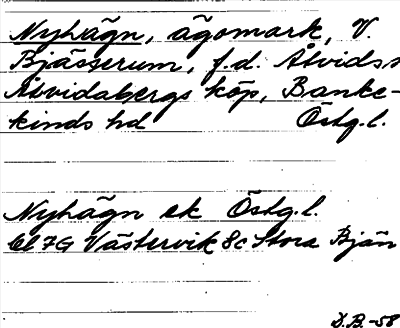 Nyhägn, ägomark, V.
Bjässerum, f.d. Åtvids s
Åtvidabergs köp, Banke-
kinds hd Östg.l.
Nyhägn ek Östg.l.
Bl 7G Västervik 8c Stora Bjän
D.B.-58